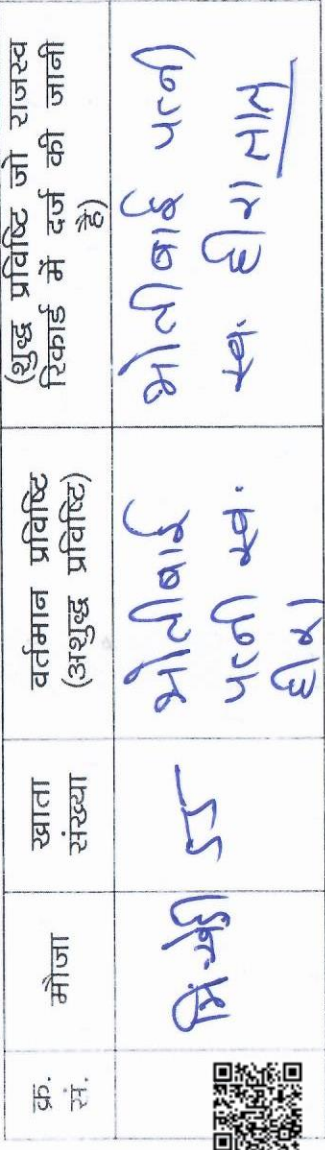 क्र.
सं.
मौजा
खाता
संख्या
वर्तमान प्रविष्टि
(अशुद्ध प्रविष्टि)
(शुद्ध प्रविष्टि जो राजस्व
रिकार्ड में दर्ज की जानी
है)
55
मोतीबाई
पत्नी स्व.
हीरा
मोतीबाई पत्नी
स्व. हीरा लाल